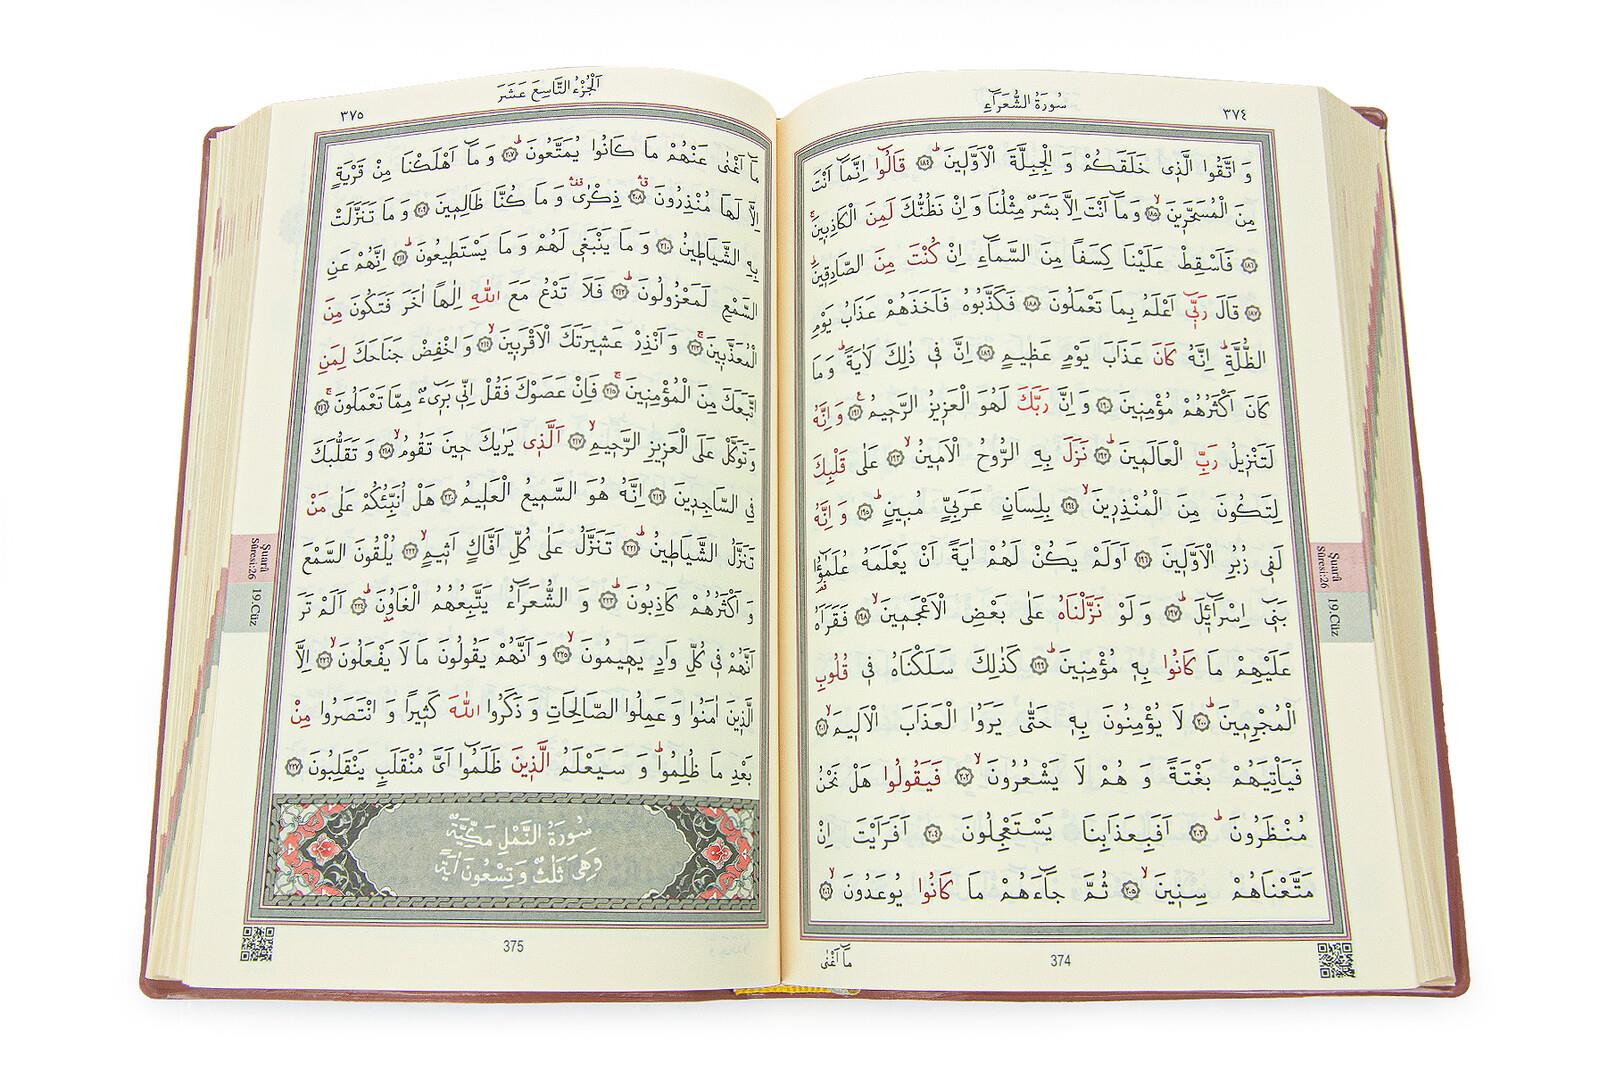 ٣٧٤
سُورَةُ الشُّعَرَاءِ
وَ اتَّقُوا الَّذ۪ى خَلَقَكُمْ وَ الْجِبِلَّةَ الْاَوَّل۪ينَۜ ﴿١٨٤﴾ قَالُٓوا اِنَّمَٓا اَنْتَ
مِنَ الْمُسَحَّر۪ينَۙ ﴿١٨٥﴾ وَ مَٓا اَنْتَ اِلَّا بَشَرٌ مِثْلُنَا وَ اِنْ نَظُنُّكَ لَمِنَ الْكَاذِب۪ينَۚ
﴿١٨٦﴾ فَاَسْقِطْ عَلَيْنَا كِسَفًا مِنَ السَّمَٓاءِ اِنْ كُنْتَ مِنَ الصَّادِق۪ينَۜ
﴿١٨٧﴾ قَالَ رَبّ۪ٓى اَعْلَمُ بِمَا تَعْمَلُونَ ﴿١٨٨﴾ فَكَذَّبُوهُ فَاَخَذَهُمْ عَذَابُ يَوْمِ
الظُّلَّةِۜ اِنَّهُ كَانَ عَذَابَ يَوْمٍ عَظ۪يمٍ ﴿١٨٩﴾ اِنَّ ف۪ى ذٰلِكَ لَاٰيَةًۜ وَ مَا
كَانَ اَكْثَرُهُمْ مُؤْمِن۪ينَ ﴿١٩٠﴾ وَ اِنَّ رَبَّكَ لَهُوَ الْعَز۪يزُ الرَّح۪يمُ۟ ﴿١٩١﴾ وَ اِنَّهُ
لَتَنْز۪يلُ رَبِّ الْعَالَم۪ينَۜ ﴿١٩٢﴾ نَزَلَ بِهِ الرُّوحُ الْاَم۪ينُۙ ﴿١٩٣﴾ عَلٰى قَلْبِكَ
لِتَكُونَ مِنَ الْمُنْذِر۪ينَۙ ﴿١٩٤﴾ بِلِسَانٍ عَرَبِىٍّ مُب۪ينٍۜ ﴿١٩٥﴾ وَ اِنَّهُ
لَف۪ى زُبُرِ الْاَوَّل۪ينَ ﴿١٩٦﴾ اَوَلَمْ يَكُنْ لَهُمْ اٰيَةً اَنْ يَعْلَمَهُ عُلَمٰٓؤُ۬ا
بَن۪ٓى اِسْرَٓائ۪لَۜ ﴿١٩٧﴾ وَ لَوْ نَزَّلْنَاهُ عَلٰى بَعْضِ الْاَعْجَم۪ينَۙ ﴿١٩٨﴾ فَقَرَاَهُ
عَلَيْهِمْ مَا كَانُوا بِه۪ مُؤْمِن۪ينَۜ ﴿١٩٩﴾ كَذٰلِكَ سَلَكْنَاهُ ف۪ى قُلُوبِ
الْمُجْرِم۪ينَۜ ﴿٢٠٠﴾ لَا يُؤْمِنُونَ بِه۪ حَتّٰى يَرَوُا الْعَذَابَ الْاَل۪يمَۙ ﴿٢٠١﴾
فَيَاْتِيَهُمْ بَغْتَةً وَ هُمْ لَا يَشْعُرُونَۙ ﴿٢٠٢﴾ فَيَقُولُوا هَلْ نَحْنُ
مُنْظَرُونَۜ ﴿٢٠٣﴾ اَفَبِعَذَابِنَا يَسْتَعْجِلُونَ ﴿٢٠٤﴾ اَفَرَاَيْتَ اِنْ
مَتَّعْنَاهُمْ سِن۪ينَۙ ﴿٢٠٥﴾ ثُمَّ جَٓاءَهُمْ مَا كَانُوا يُوعَدُونَۙ ﴿٢٠٦﴾
مَٓا اَغْنٰى
374
Şuarâ
Sûresi:26
19.Cüz
٣٧٥
اَلْجُزْءُ التَّاسِعَ عَشَرَ
مَٓا اَغْنٰى عَنْهُمْ مَا كَانُوا يُمَتَّعُونَۜ ﴿٢٠٧﴾ وَ مَٓا اَهْلَكْنَا مِنْ قَرْيَةٍ
اِلَّا لَهَا مُنْذِرُونَ ﴿٢٠٨﴾ ذِكْرٰى وَ مَا كُنَّا ظَالِم۪ينَ ﴿٢٠٩﴾ وَ مَا تَنَزَّلَتْ
بِهِ الشَّيَاط۪ينُ ﴿٢١٠﴾ وَ مَا يَنْبَغ۪ى لَهُمْ وَ مَا يَسْتَط۪يعُونَۜ ﴿٢١١﴾ اِنَّهُمْ عَنِ
السَّمْعِ لَمَعْزُولُونَۜ ﴿٢١٢﴾ فَلَا تَدْعُ مَعَ اللّٰهِ اِلٰهًا اٰخَرَ فَتَكُونَ مِنَ
الْمُعَذَّب۪ينَۚ ﴿٢١٣﴾ وَ اَنْذِرْ عَش۪يرَتَكَ الْاَقْرَب۪ينَۙ ﴿٢١٤﴾ وَ اخْفِضْ جَنَاحَكَ لِمَنِ
اتَّبَعَكَ مِنَ الْمُؤْمِن۪ينَۚ ﴿٢١٥﴾ فَاِنْ عَصَوْكَ فَقُلْ اِنّ۪ى بَر۪ٓىءٌ مِمَّا تَعْمَلُونَۚ ﴿٢١٦﴾
وَ تَوَكَّلْ عَلَى الْعَز۪يزِ الرَّح۪يمِۙ ﴿٢١٧﴾ اَلَّذ۪ى يَرٰيكَ ح۪ينَ تَقُومُۙ ﴿٢١٨﴾ وَ تَقَلُّبَكَ
فِى السَّاجِد۪ينَ ﴿٢١٩﴾ اِنَّهُ هُوَ السَّم۪يعُ الْعَل۪يمُ ﴿٢٢٠﴾ هَلْ اُنَبِّئُكُمْ عَلٰى مَنْ
تَنَزَّلُ الشَّيَاط۪ينُۜ ﴿٢٢١﴾ تَنَزَّلُ عَلٰى كُلِّ اَفَّاكٍ اَث۪يمٍۙ ﴿٢٢٢﴾ يُلْقُونَ السَّمْعَ
وَ اَكْثَرُهُمْ كَاذِبُونَۜ ﴿٢٢٣﴾ وَ الشُّعَرَٓاءُ يَتَّبِعُهُمُ الْغَاوُ۫نَۜ ﴿٢٢٤﴾ اَلَمْ تَرَ
اَنَّهُمْ ف۪ى كُلِّ وَادٍ يَه۪يمُونَۙ ﴿٢٢٥﴾ وَ اَنَّهُمْ يَقُولُونَ مَا لَا يَفْعَلُونَۙ ﴿٢٢٦﴾ اِلَّا
الَّذ۪ينَ اٰمَنُوا وَ عَمِلُوا الصَّالِحَاتِ وَ ذَكَرُوا اللّٰهَ كَث۪يرًا وَ انْتَصَرُوا مِنْ
بَعْدِ مَا ظُلِمُواۜ وَ سَيَعْلَمُ الَّذ۪ينَ ظَلَمُٓوا اَىَّ مُنْقَلَبٍ يَنْقَلِبُونَ ﴿٢٢٧﴾
سُورَةُ النَّمْلِ مَكِّيَّةٌ
وَهِىَ ثَلَاثٌ وَ تِسْعُونَ اٰيَةً
375
Şuarâ
Sûresi:26
19.Cüz